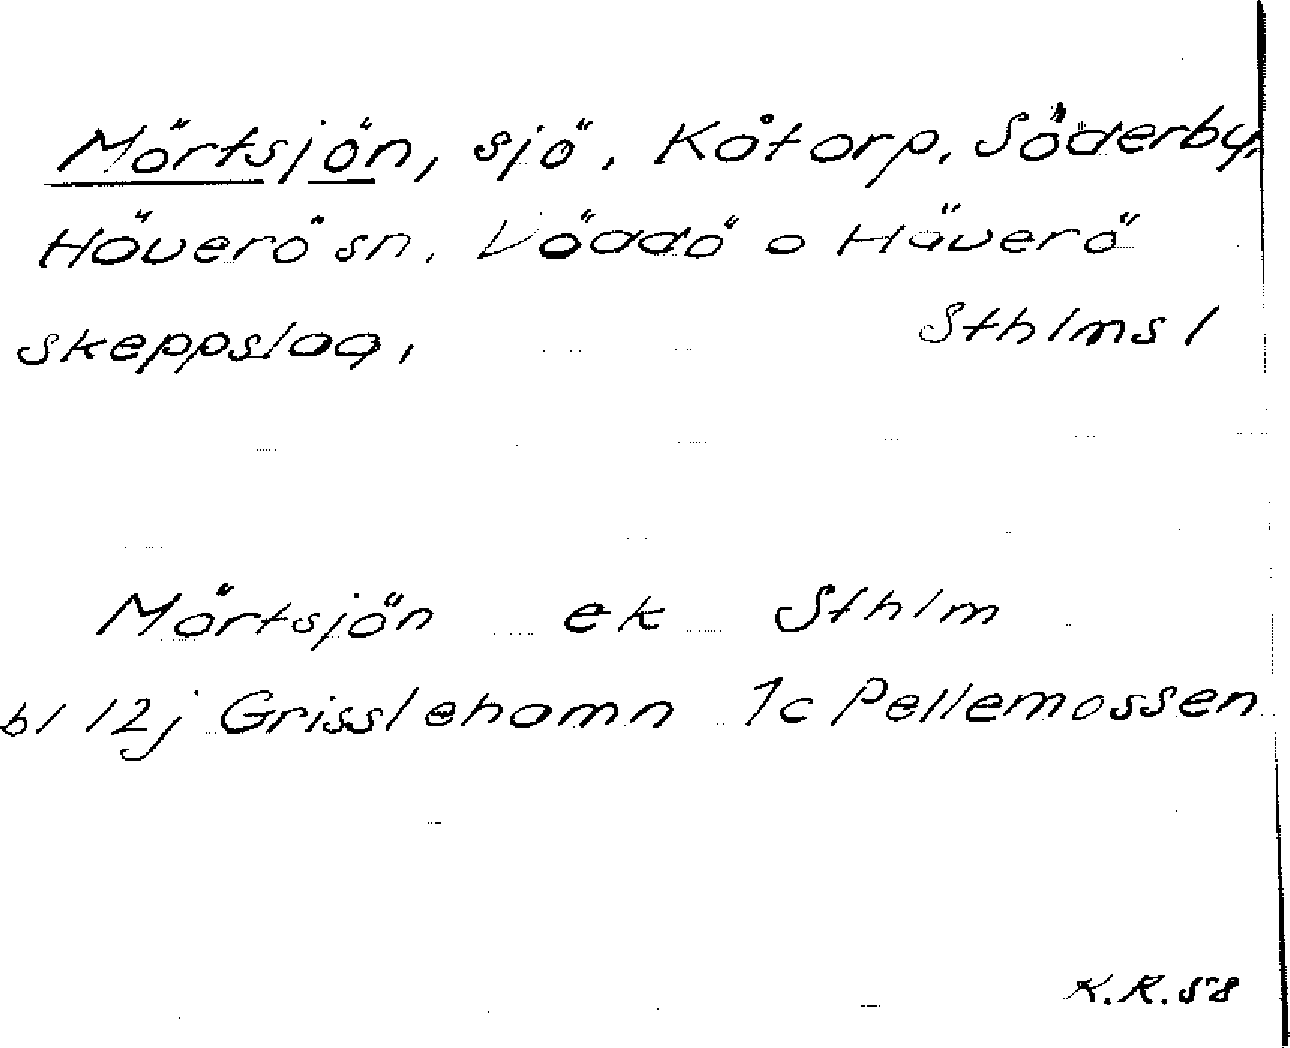 Mörtsjön, sjö, Kåtorp, Söderby,
Häverö sn, Väddö o Häverö
skeppslag, Sthlms l
Mörtsjön ek Sthlm
bl 12j Grisslehamn 1c Pellemossen
K.R. 58